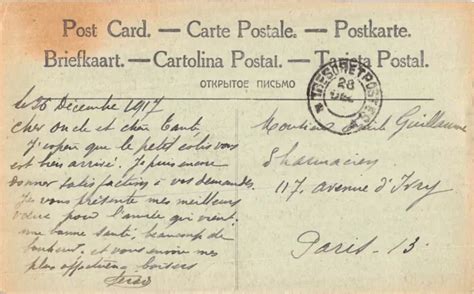 Post Card. — Carte Postale. — Postkarte.
Briefkaart. — Cartolina Postal. — Tarjeta Postal.
ОТКРЫТОЕ ПИСЬМО
TRESOR ET POSTES
28
le 26 Décembre 1917
Cher oncle et chère Tante
J'espère que le petit colis vous
est bien arrivé. Je puis
donner satisfaction à vos demandes
Je vous présente mes meilleurs
vœux pour l'année qui vient:
une bonne santé, beaucoup de
bonheur. et vous envoie mes
plus affectueux baisers
Monsieur Guillaume
Pharmacien
117. avenue d'Ivry
Paris - 13.